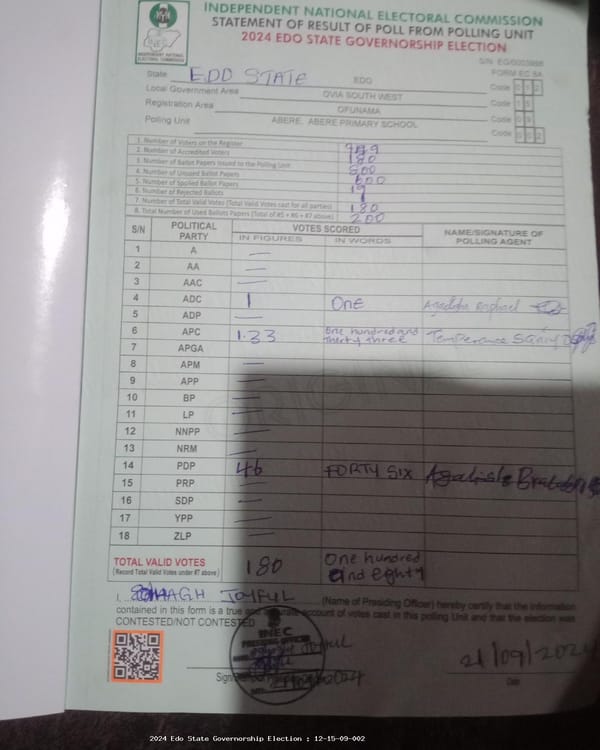 INDEPENDENT NATIONAL ELECTORAL COMMISSION
STATEMENT OF RESULT OF POLL FROM POLLING UNIT
2024 EDO STATE GOVERNORSHIP ELECTION
FORM EC 8A
State EDO STATE EDO Code
Local Government Area OVIA SOUTH WEST Code
Registration Area OFUNAMA Code
Polling Unit ABERE, ABERE PRIMARY SCHOOL Code
1. Number of Voters on the Register
2. Number of Accredited Voters 180
3. Number of Ballot Papers Issued to the Polling Unit 800
4. Number of Unused Ballot Papers 600
5. Number of Spoiled Ballot Papers 19
6. Number of Rejected Ballots 1
7. Number of Total Valid Votes (Total Valid Votes cast for all parties) 180
8. Total Number of Used Ballots Papers (Total of #5 + #6 + #7 above) 200
S/N POLITICAL PARTY VOTES SCORED NAME/SIGNATURE OF POLLING AGENT
IN FIGURES IN WORDS
1 A —
2 AA —
3 AAC —
4 ADC 1 One
5 ADP —
6 APC 133 One hundred and thirty three Temperance Sunny
7 APGA
8 APM —
9 APP —
10 BP —
11 LP —
12 NNPP —
13 NRM —
14 PDP 46 FORTY SIX
15 PRP —
16 SDP —
17 YPP —
18 ZLP —
TOTAL VALID VOTES 180 One hundred and eighty
(Record Total Valid Votes under #7 above)
I, JOYFUL (Name of Presiding Officer) hereby certify that the information
contained in this form is a true and accurate account of votes cast in this polling Unit and that the election was
CONTESTED/NOT CONTESTED
INEC
PRESIDING OFFICER
21/09/2024
21/09/2024
Date
2024 Edo State Governorship Election : 12-15-09-002